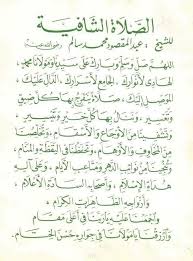 الصَّلاةُ الشَّافِيَة
للشيخ عبد المقصود محمد سالم رضي الله عنه
اللهم صل وسلم وبارك على سيدنا ومولانا محمد
الهادي لأنوارك، الجامع لأسرارك، الدال عليك،
الموصل إليك، صلاة ينفرج بها كل ضيق
وتعسير، وننال بها كل خير وتيسير،
وتشفينا من الأوجاع والأسقام، وتخلصنا
من الأوهام، وتحفظنا في اليقظة والمنام،
من نوائب الدهر ومتاعب الأيام، وعلى آله
هداة الإسلام، وأصحابه السادة الأعلام،
وأزواجه الطاهرات الكرام،
واجمعنا عليه يا ربنا في أعلى مقام
وارزقنا يا مولانا في جواره حسن الختام.